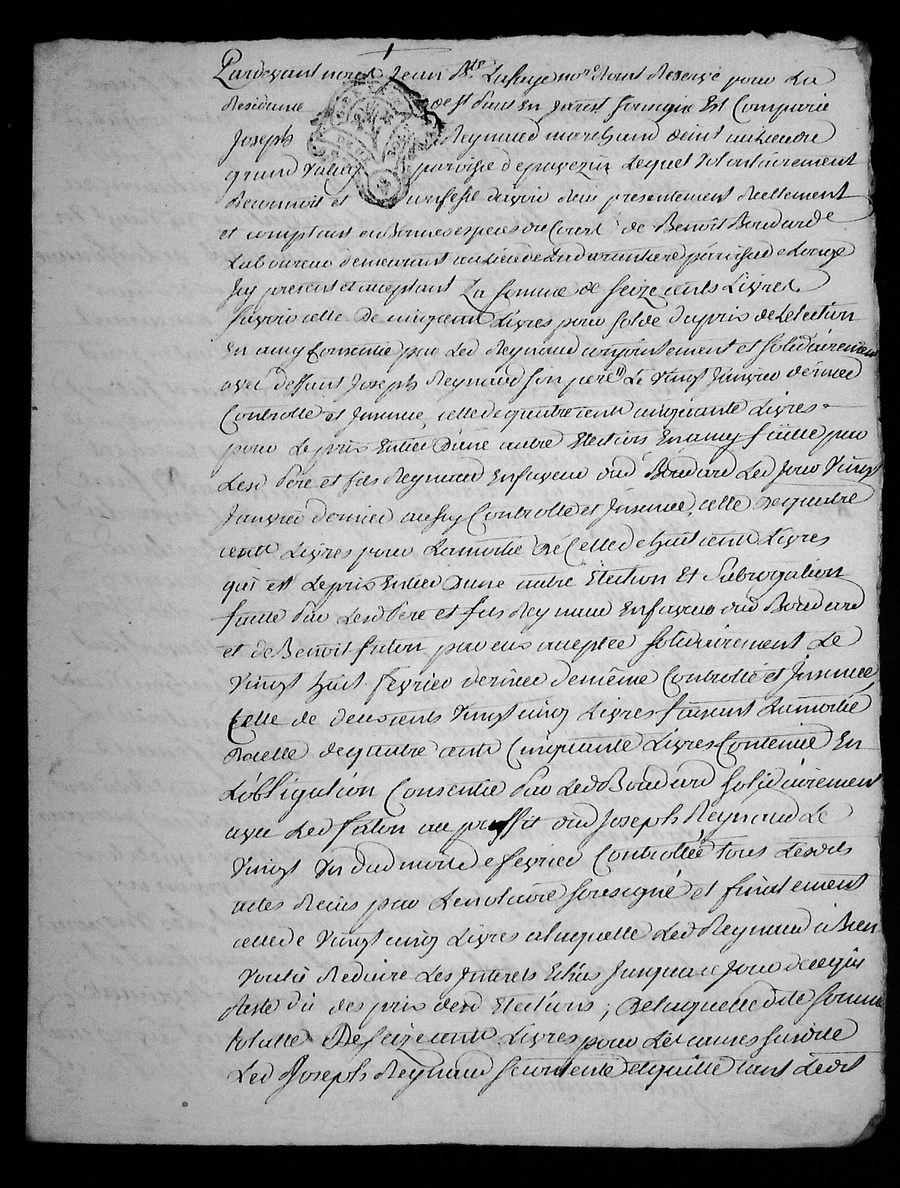 Pardevant nore Jean Bte Lafaye nore Royal Reservé pour La
Residence de St Paul En Jarest soussigné Est Comparu
Joseph Reynaud marchand
grand paroisse depavezin Lequel Volontairement
Reconnoit et confesse davoir Recu presentement Reellement
et comptant en Bonnes especes du Cours de Benoit Boudard
Laboureur demeurant au Lieu de paroisse
Icy present et acceptant La somme de seize cents Livres
scavoir celle de cinq cent Livres pour solde du prix de Lelection
En amy Consentie par Led Reynaud conjointement et solidairement
avec deffunt Joseph Reynaud son pere Le Vingt Janvier dernier
Controllé et Insinué, celle de quatre cent cinquante Livres
pour Le prix Entier Dune autre Election En amy faitte par
Lesd Pere et fils Reynaud En faveur dud Boudard Led Jour Vingt
Janvier dernier aussy Controllé et Insinué, celle De quatre
cent Livres pour La moitié de Celle de huit cent Livres
qui est Le prix Entier Dune autre Election Et Subrogation
faitte Par Lesd Pere et fils Reynaud En faveur dud Boudard
et de Benoit fulon par eux acceptée solidairement Le
Vingt huit fevrier dernier de même Controllé et Insinué,
Celle de deux cents Vingt cinq Livres faisant La moitié
de celle de quatre cent Cinquante Livres Contenue En
Lobligation Consentie Par Led Boudard Solidairement
avec Led fulon au proffit dud Joseph Reynaud Le
Vingt Un dud mois de fevrier Controllée tous Lesdits
actes Recus par Le notaire soussigné et finalement
celle de Vingt cinq Livres a laquelle Led Reynaud à Bien
Voulu Reduire Les Interets Echus Jusqua ce Jour de ce qui
Reste du des prix desd Elections; De laquelle dite somme
totalle De seize cent Livres pour Les causes susdite
Led Joseph Reynaud se contente et quitte tant Ledit